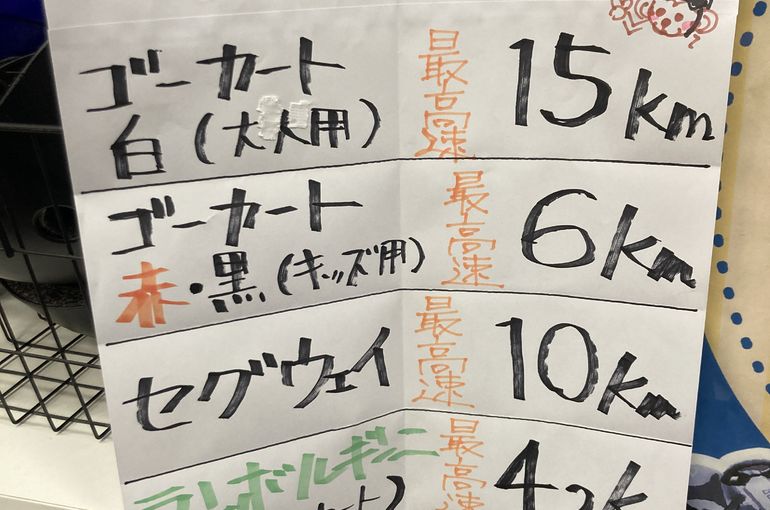 ゴーカート 最高速 15km
白(大人用)
ゴーカート 最高速 6km
赤・黒(キッズ用)
セグウェイ 最高速 10km
ランボルギーニ 最高速